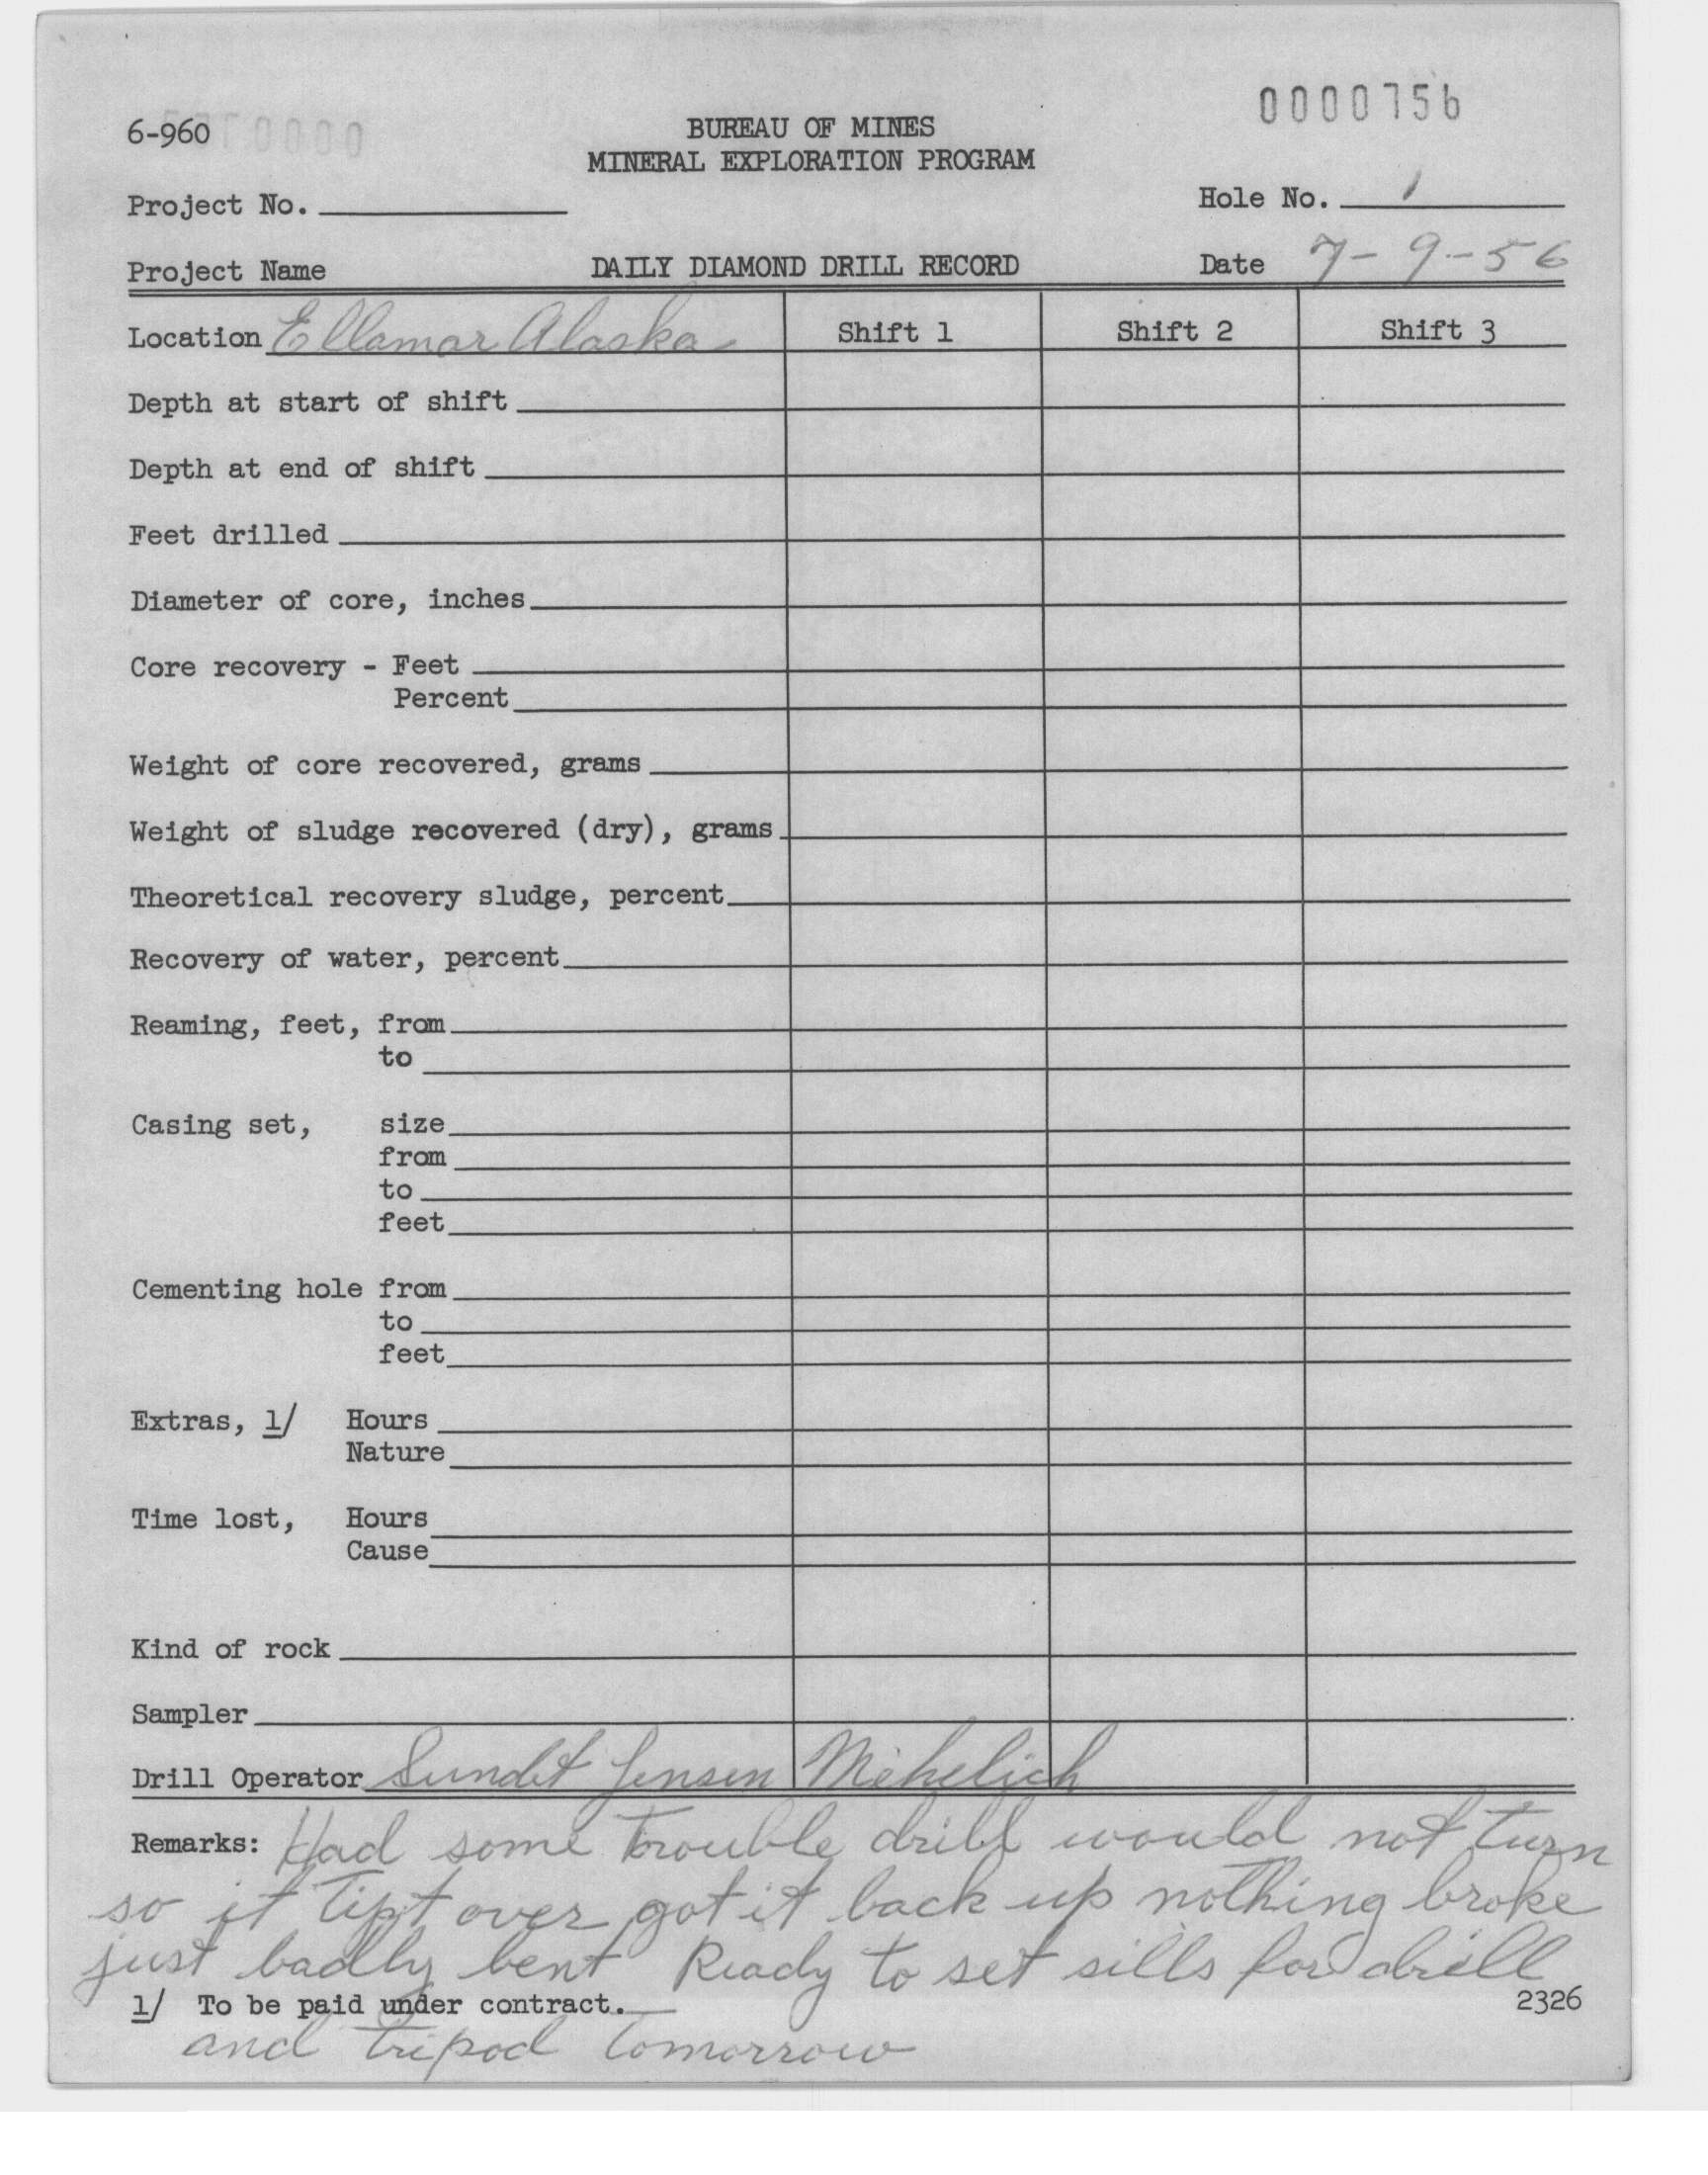 0000756
6-960
BUREAU OF MINES
MINERAL EXPLORATION PROGRAM
Project No.
Hole No. 1
Project Name
DAILY DIAMOND DRILL RECORD
Date 7-9-56
Location Ellamar Alaska
Shift 1 Shift 2 Shift 3
Depth at start of shift
Depth at end of shift
Feet drilled
Diameter of core, inches
Core recovery - Feet
Percent
Weight of core recovered, grams
Weight of sludge recovered (dry), grams
Theoretical recovery sludge, percent
Recovery of water, percent
Reaming, feet, from
to
Casing set, size
from
to
feet
Cementing hole from
to
feet
Extras, 1/ Hours
Nature
Time lost, Hours
Cause
Kind of rock
Sampler
Drill Operator Sundt Jensen Mihelich
Remarks: Had some trouble drill would not turn
so it tipt over got it back up nothing broke
just badly bent Ready to set sills for drill
1/ To be paid under contract.
2326
and tripod tomorrow